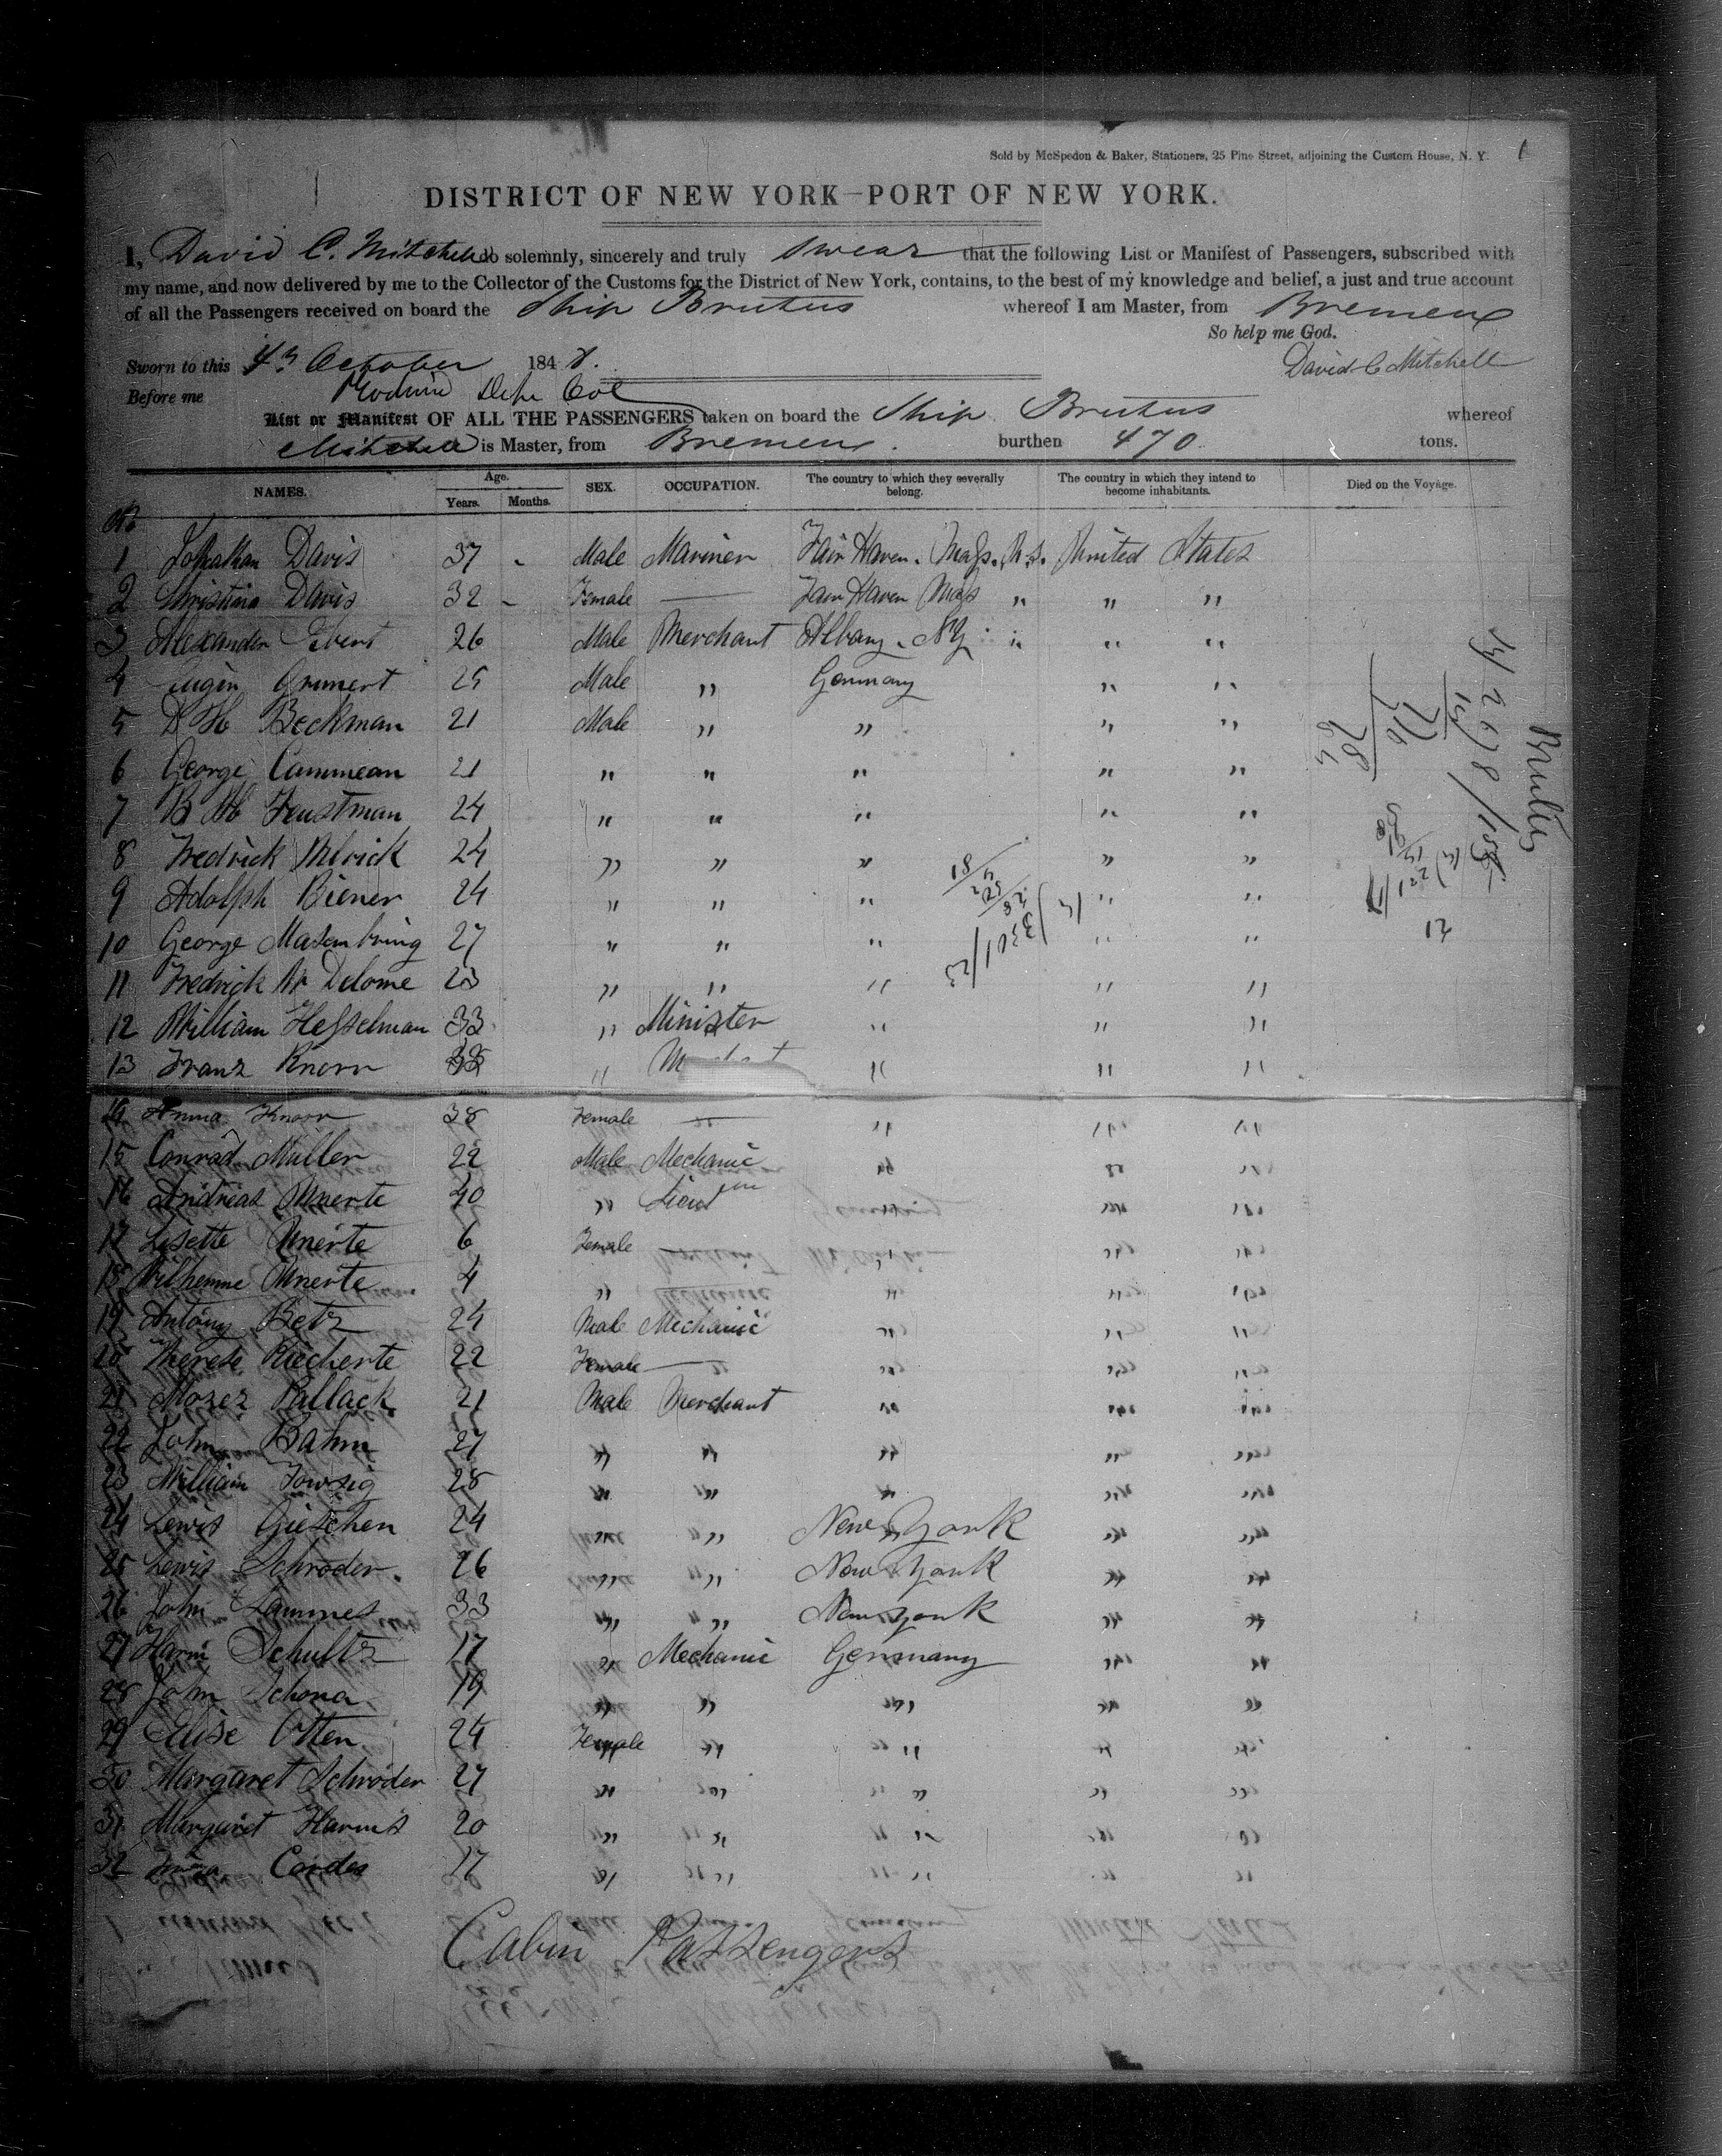 Sold by McSpedon & Baker, Stationers, 25 Pine Street, adjoining the Custom House, N. Y. 1
DISTRICT OF NEW YORK—PORT OF NEW YORK.
I, David C. Mitchell do solemnly, sincerely and truly swear that the following List or Manifest of Passengers, subscribed with
my name, and now delivered by me to the Collector of the Customs for the District of New York, contains, to the best of my knowledge and belief, a just and true account
of all the Passengers received on board the Ship Brutus whereof I am Master, from Bremen
So help me God.
Sworn to this 4th October 1848. David C Mitchell
Before me
List or Manifest OF ALL THE PASSENGERS taken on board the Ship Brutus whereof
Mitchell is Master, from Bremen. burthen 470. tons.
NAMES. Age. Years. Months. SEX. OCCUPATION. The country to which they severally belong. The country in which they intend to become inhabitants. Died on the Voyage.
No
1 Johathan Davis 37 - Male Mariner Fair Haven. Mass. U.S. United States
2 Christina Davis 32 - Female — Fair Haven Mass " " "
3 Alexander Ebert 26 Male Merchant Albany. NY " " "
4 Eugin Grunert 25 Male " Germany " "
5 D H Beckman 21 Male " " " "
6 George Cammean 21 " " " " "
7 B H Feustman 24 " " " " "
8 Fredrick Ulrick 24 " " " " "
9 Adolph Biener 24 " " " " "
10 George Masembring 27 " " " " "
11 Fredrick W Delome 23 " " " " "
12 William Hesselman 33 " Minister " " "
13 Franz Knorr " " " "
14 Anna Knorr 38 Female — " " "
15 Conrad Muller 22 Male Mechanic " " "
16 Andreas Unerte 40 " " "
17 Lisette Unerte 6 Female — " " "
18 Wilhemne Unerte 4 " " " "
19 Antony Betz 24 Male Mechanic " " "
20 Therese Riecherte 22 Female — " " "
21 Moses Pallack 21 Male Merchant " " "
22 John Bahm 27 " " " " "
23 William Towsig 28 " " " " "
24 Lewis Gieschen 24 " " New York " "
25 Lewis Schroder. 26 " " New York " "
26 John Lammes 33 " " New York " "
27 Harm Schultz 17 " Mechanic Germany " "
28 John Schona 19 " " " " "
29 Elise Otten 24 Female " " " "
30 Margaret Schroder 27 " " " " "
31 Margaret Harms 20 " " " " "
32 Cordes 17 " " " " "
Cabin Passengers
Brutus